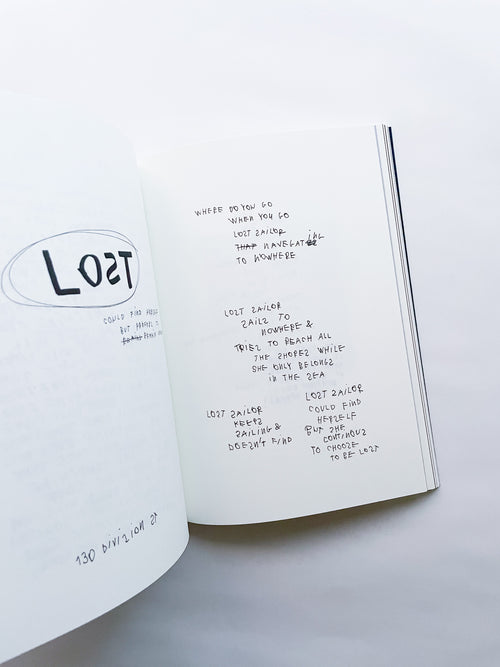 LOST
COULD FIND
BUT
130 DIVISION ST
WHERE DO YOU GO
WHEN YOU GO
LOST SAILOR
THAT NAVEGATING
TO NOWHERE
LOST SAILOR
SAILS TO
NOWHERE &
TRIES TO REACH ALL
THE SHORES WHILE
SHE ONLY BELONGS
IN THE SEA
LOST SAILOR
KEEPS
SAILING &
DOESN'T FIND
LOST SAILOR
COULD FIND
HERSELF
BUT SHE
CONTINOUS
TO CHOOSE
TO BE LOST